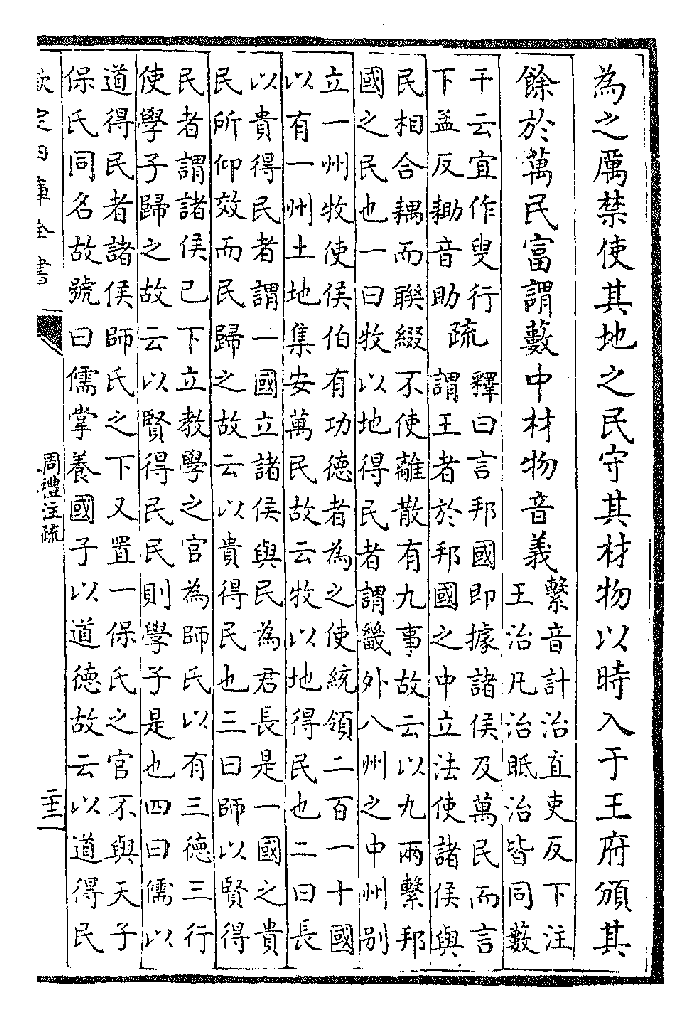 為之厲禁使其地之民守其材物以時入于王府頒其
餘於萬民富謂藪中材物音義
繫音計治直吏反下注
王治凡治眂治皆同藪
干云宜作叟行
下孟反耡音助
疏
釋曰言邦國即據諸侯及萬民而言
謂王者於邦國之中立法使諸侯與
民相合耦而聯綴不使離散有九事故云以九兩繫邦
國之民也一曰牧以地得民者謂畿外八州之中州别
立一州牧使侯伯有功德者為之使統領二百一十國
以有一州土地集安萬民故云牧以地得民也二曰長
以貴得民者謂一國立諸侯與民為君長是一國之貴
民所仰效而民歸之故云以貴得民也三曰師以賢得
民者謂諸侯已下立教學之官為師氏以有三德三行
使學子歸之故云以賢得民民則學子是也四曰儒以
道得民者諸侯師氏之下又置一保氏之官不與天子
保氏同名故號曰儒掌養國子以道德故云以道得民
欽定四庫全書
周禮注疏